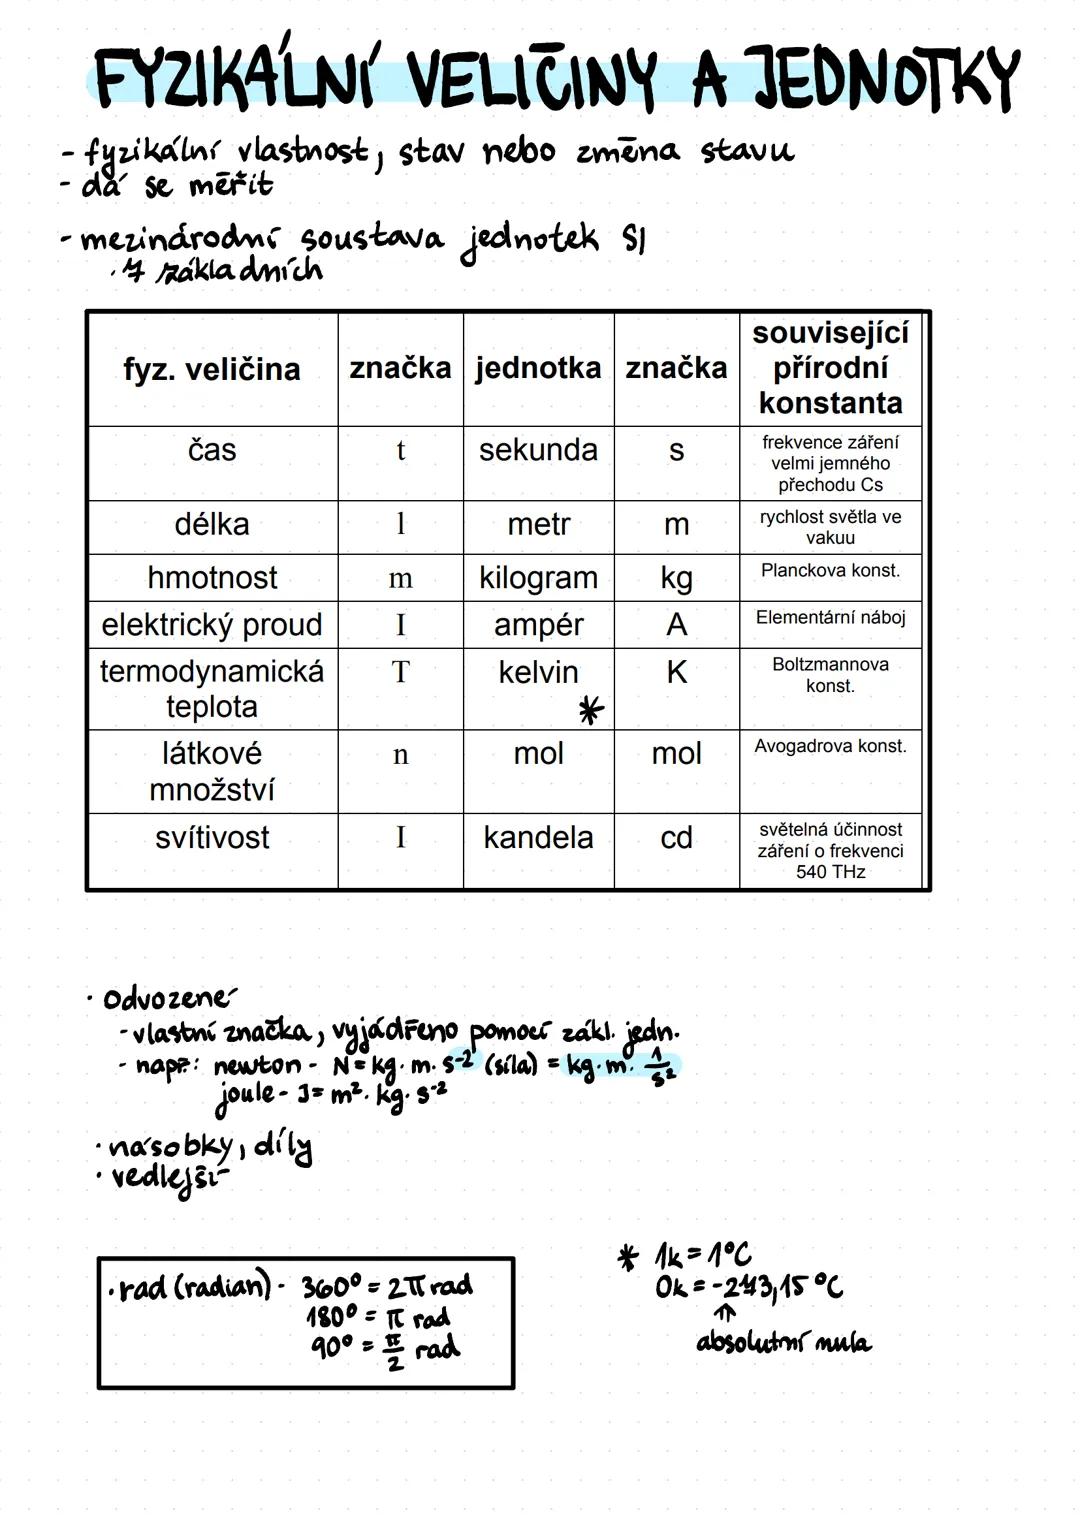 FYZIKÁLNÍ VELIČINY A JEDNOTKY
- fyzikální vlastnost, stav nebo změna stavu
- dá se měřit
- mezinárodní soustava jednotek SI
· 7 základních
fyz. veličina značka jednotka značka související přírodní konstanta
čas t sekunda s frekvence záření velmi jemného přechodu Cs
délka l metr m rychlost světla ve vakuu
hmotnost m kilogram kg Planckova konst.
elektrický proud I ampér A Elementární náboj
termodynamická teplota T kelvin * K Boltzmannova konst.
látkové množství n mol mol Avogadrova konst.
svítivost I kandela cd světelná účinnost záření o frekvenci 540 THz
· Odvozené
- vlastní značka, vyjádřeno pomocí zákl. jedn.
- např.: newton - N = kg · m · s⁻² (síla) = kg · m · 1/s²
joule - J = m² · kg · s⁻²
· násobky, díly
· vedlejší
· rad (radian) - 360° = 2π rad
180° = π rad
90° = π/2 rad
* 1k = 1°C
0k = -273,15 °C
↑
absolutní nula